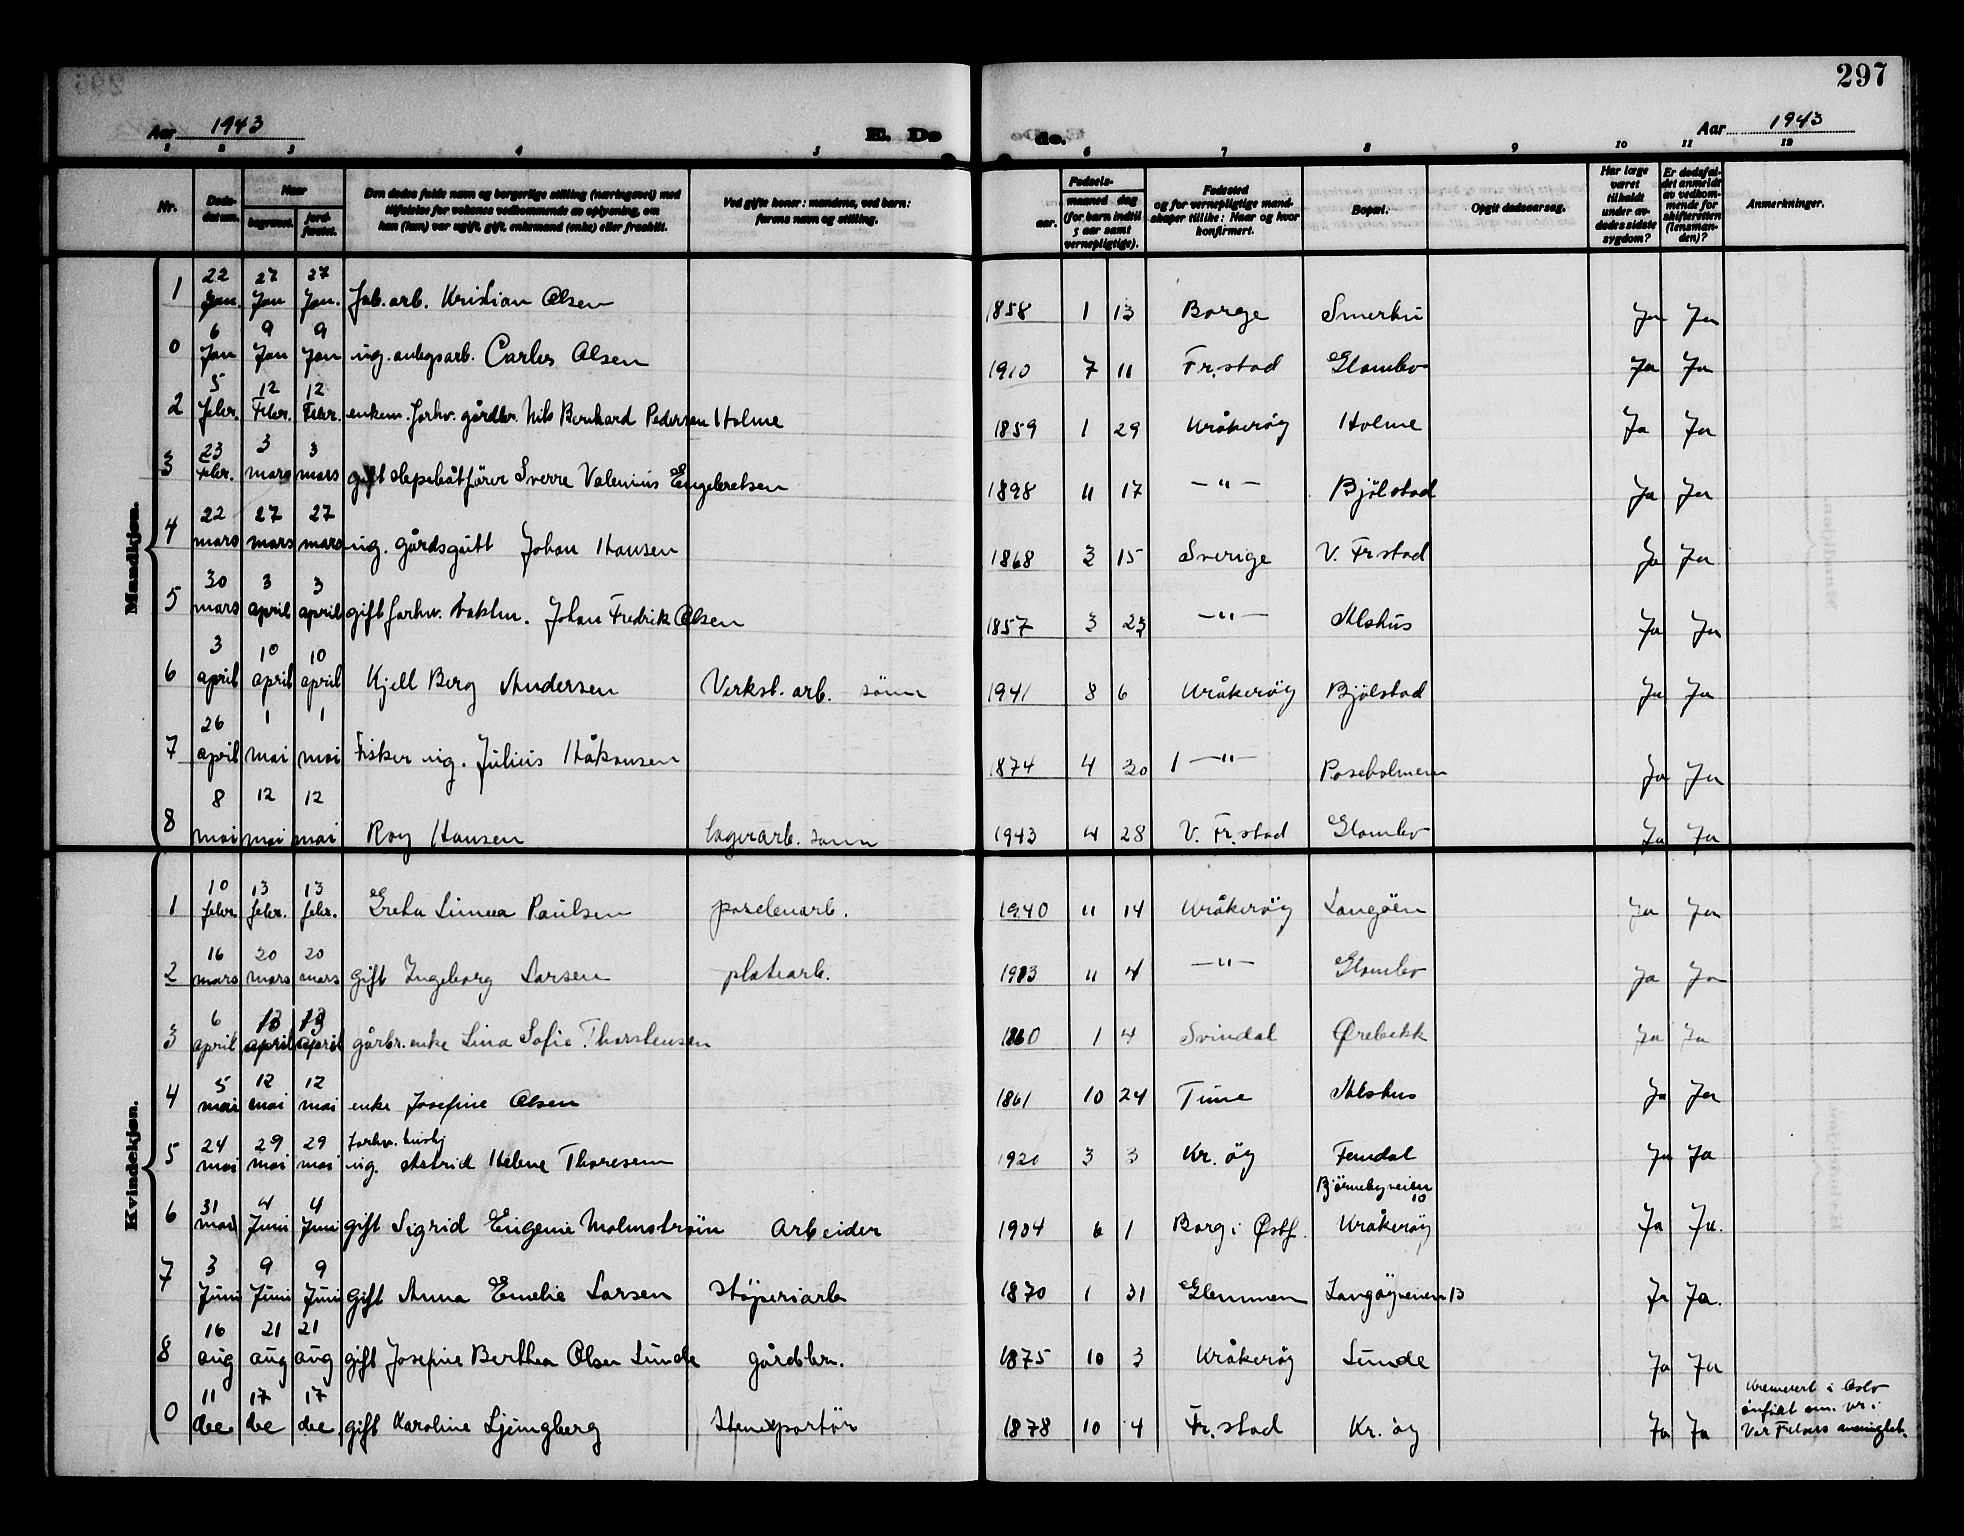 297
Aar 1943 E. Dø
de. Aar 1943
1 2 3 4 5 6 7 8 9 10 11 12
Nr. Døds-datum. Naar begravet. jord-fæstet. Den dødes fulde navn og borgerlige stilling (næringsvei) med tilføielse for voksnes vedkommende av oplysning, om han (hun) var ugift, gift, enkemand (enke) eller fraskilt. Ved gifte koner: mandens, ved barn: farens navn og stilling. Fødsels- aar. maaned dag (for barn indtil 5 aar samt vernepligtige). Fødested og for vernepligtige mand-skaper tillike: Naar og hvor konfirmert. Bopæl. Opgit dødsaarsag. Har læge været tilkaldt under av-dødes sidste sygdom? Er dødsfal-det anmeldt av vedkom-mende for skifteretten (lensman-den)? Anmerkninger.
Mandkjøn.
1 22 Jan. 27 Jan 27 Jan. Fab. arb. Kristian Olsen 1858 1 13 Borge Smerbu Ja Ja
0 6 Jan 9 Jan 9 Jan ug. anlegsarb. Carles Olsen 1910 7 11 Fr.stad Glombo Ja Ja
2 5 febr. 12 Febr. 12 Febr. enkem. forhv. gårdbr. Nils Bernhard Pedersen Holme 1859 1 29 Kråkerøy Holme Ja Ja
3 23 Febr. 3 mars 3 mars gift slepebåtfører Sverre Valenius Engebretsen 1898 11 17 —"— Bjølstad Ja Ja
4 22 mars 27 mars 27 mars ug. gårdsgutt Johan Hansen 1868 3 15 Sverige V. Frstad Ja Ja
5 30 mars 3 april 3 april gift forhv. vaktm. Johan Fredrik Olsen 1857 3 23 —"— Alshus Ja Ja
6 3 april 10 april 10 april Kjell Berg Andersen Verkst. arb. sønn 1941 8 6 Kråkerøy Bjølstad Ja Ja
7 26 april 1 mai 1 mai Fisker ug. Julius Håkonsen 1874 4 30 —"— Roseholmen Ja Ja
8 8 mai 12 mai 12 mai Roy Hansen lagerarb. sønn 1943 4 28 V. Fr.stad Glombo Ja Ja
Kvindekjøn.
1 10 febr 13 febr. 13 febr. Greta Linnea Paulsen porselenarb. 1940 11 14 Kråkerøy Langøen Ja Ja
2 16 mars 20 mars 20 mars gift Ingeborg Larsen platearb. 1903 11 4 —"— Glombo Ja Ja
3 6 april 13 april 13 april gårbr. enke Lina Sofie Thorstensen 1860 1 4 Svindal Ørebekk Ja Ja
4 5 mai 12 mai 12 mai enke Josefine Olsen 1861 10 24 Tune Alshus Ja Ja
5 24 mai 29 mai 29 mai forhv. hushj ug. Astrid Helene Thoresen 1920 3 3 Kr. øy Femdal Ja Ja
6 31 mai 4 Juni 4 Juni gift Sigrid Eugenie Malmstrøm Arbeider 1904 6 1 Borg i Østf. Bjørnebyveien 10 Kråkerøy Ja Ja.
7 3 Juni 9 Juni 9 Juni gift Anna Emelie Larsen støperiarb 1870 1 31 Glemmen Langøyveien 13 Ja Ja.
8 16 aug 21 aug 21 aug gift Josefine Berthea Olsen Lunde gårdbr. 1875 10 3 Kråkerøy Lunde Ja Ja
0 11 des 17 des 17 des gift Karoline Ljungberg Stenexportør 1878 10 4 Fr.stad Kr. øy Ja Ja Kremert i Oslo
innført em. nr. i
Vestre Fr.stads menighet.